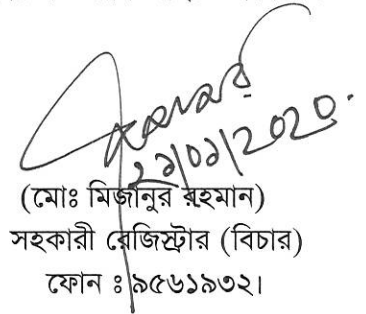 ২১/০১/২০২০.
(মোঃ মিজানুর রহমান)
সহকারী রেজিস্ট্রার (বিচার)
ফোন ঃ ৯৫৬১৯৩২।